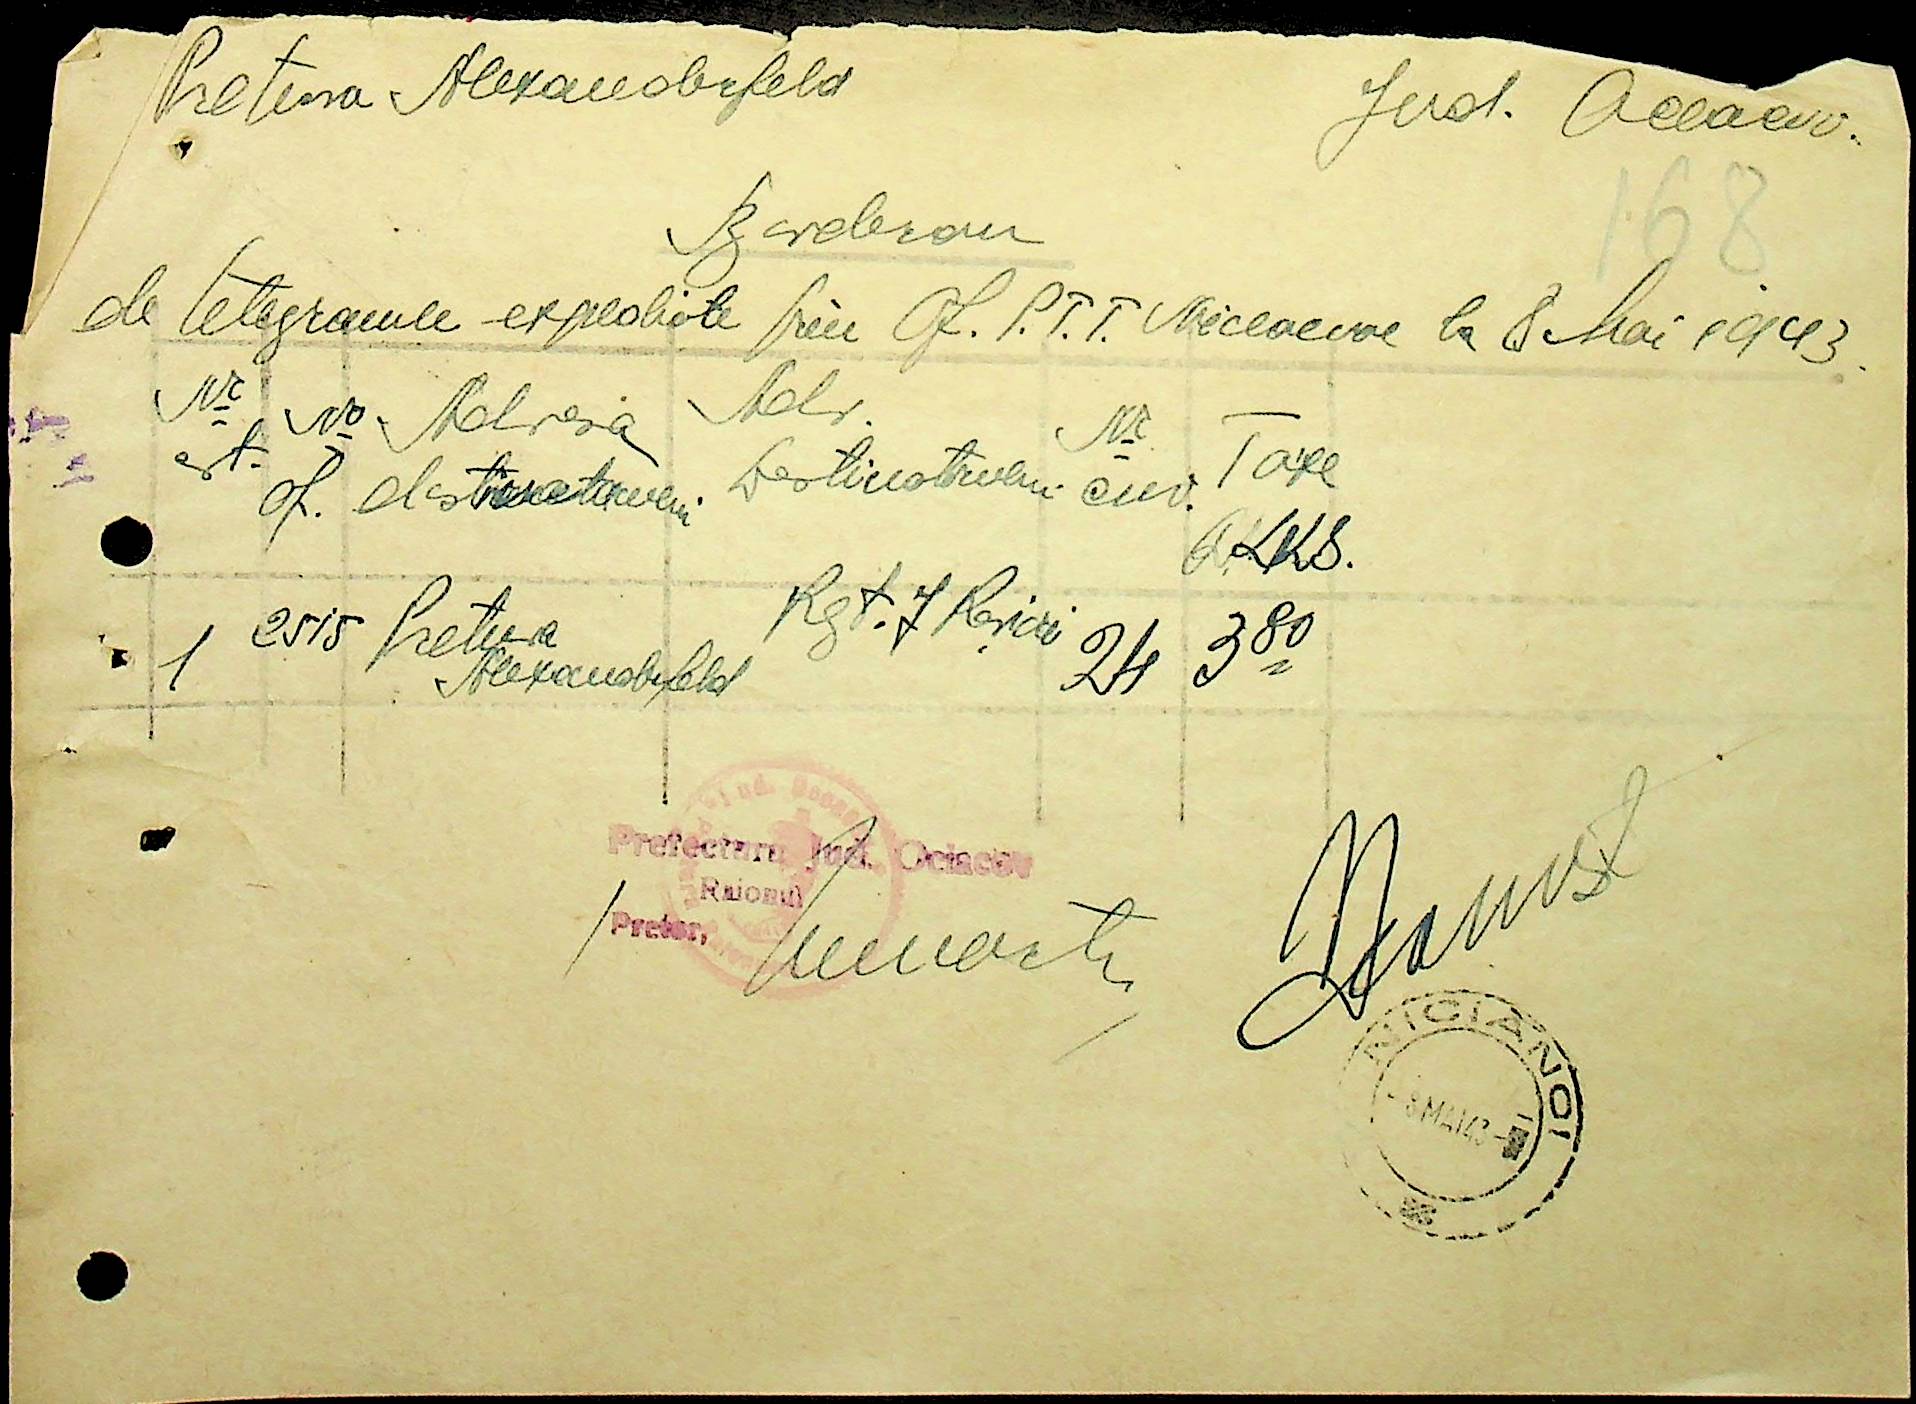 Pretura Alexanderfeld
Jud. Oceacov.
168
Borderou
de telegramele expediate prin Of. P.T.T. Niceaevae la 8 Mai 1943.
Nr. crt.
No of.
Adresa destinatarului
Adr. Destinatarului
Nr. cuv.
Taxe RKKS.
1 2515 Pretura Alexanderfeld Rgt. 7 Roșiori 24 3 80
Prefectura Jud. Ociacov
Raionul
Pretor,
NICIANOI
- 8 MAI 43 -